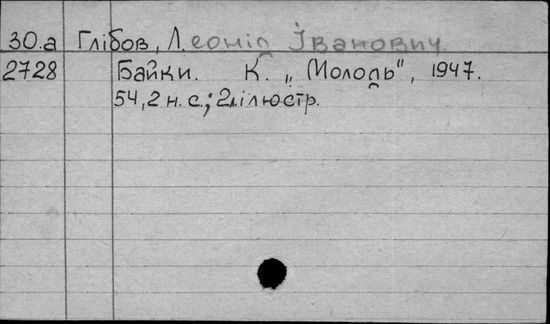 30.а Глібов, Леонід Іванович
2728 Байки. К. „Молодь", 1947.
54,2 н. с.; 2 ілюстр.